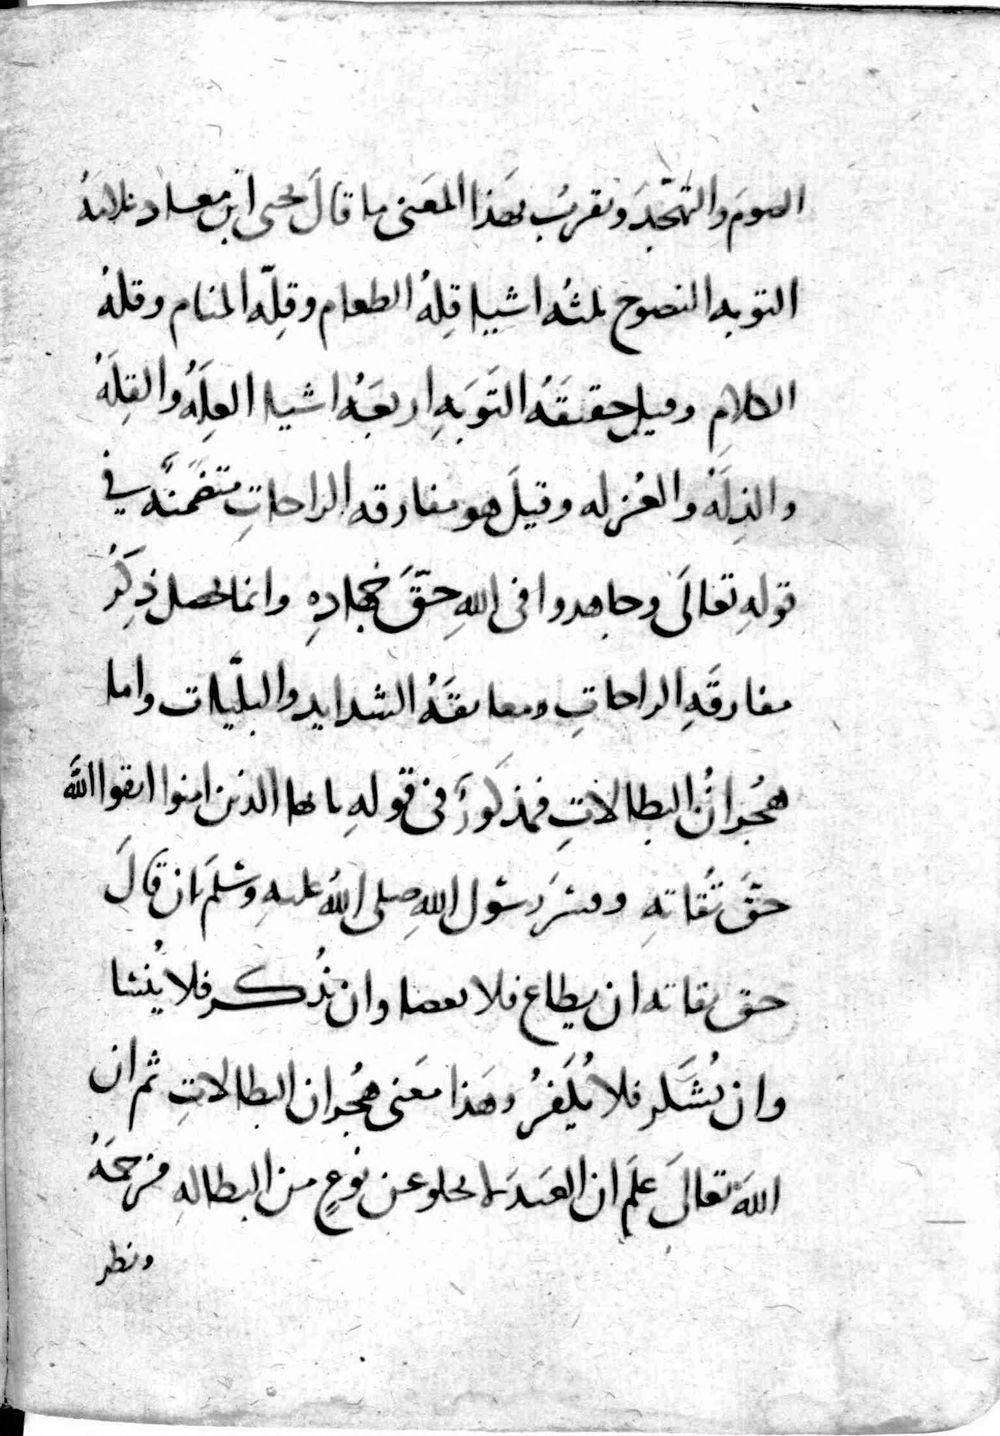 الصومَ والتهجّدَ ويقربُ بهَذا المعَنى ما قالَ يحيى ابن معاد علامَهُ
التوبه النصوح ثلثُه اشيا قِلهُ الطعام وقِلّه المنام وقلهُ
الكلامِ وقيل حقيقَهُ التَوبَهِ اربعَهُ اشيا العِلَهُ والقِلَهُ
والذِلَهُ والعُزله وقيلَ هو مفارقه الراحاتِ متضمّنَه في
قولهِ تعالَى وجاهدوا فى اللهِ حقّ جهادِهِ وانما يحصل ذِكرُ
مفارقَهِ الراحاتِ ومعانقَهُ الشدايد والبليّات واما
هجُرانُ البطالاتِ فمذكورٌ فى قولهِ يا يها الذين امنوا اتقوا اللهَ
حقَّ تُقاتهِ وفسَرَ رسُول اللهِ صلى اللهُ عليهِ وسَلمَ بان قالَ
حق تقاته ان يطاع فلا يعصا وان يُذكر فلا يُنسا
وان يُشكَر فلا يُكفَرُ وهَذا معَنى هجُران البطالاتِ ثم ان
اللهَ تعالَى علَم ان العَبدَ لا يخلو عن نوعٍ من البطالهِ فرحمَهُ
ونظر